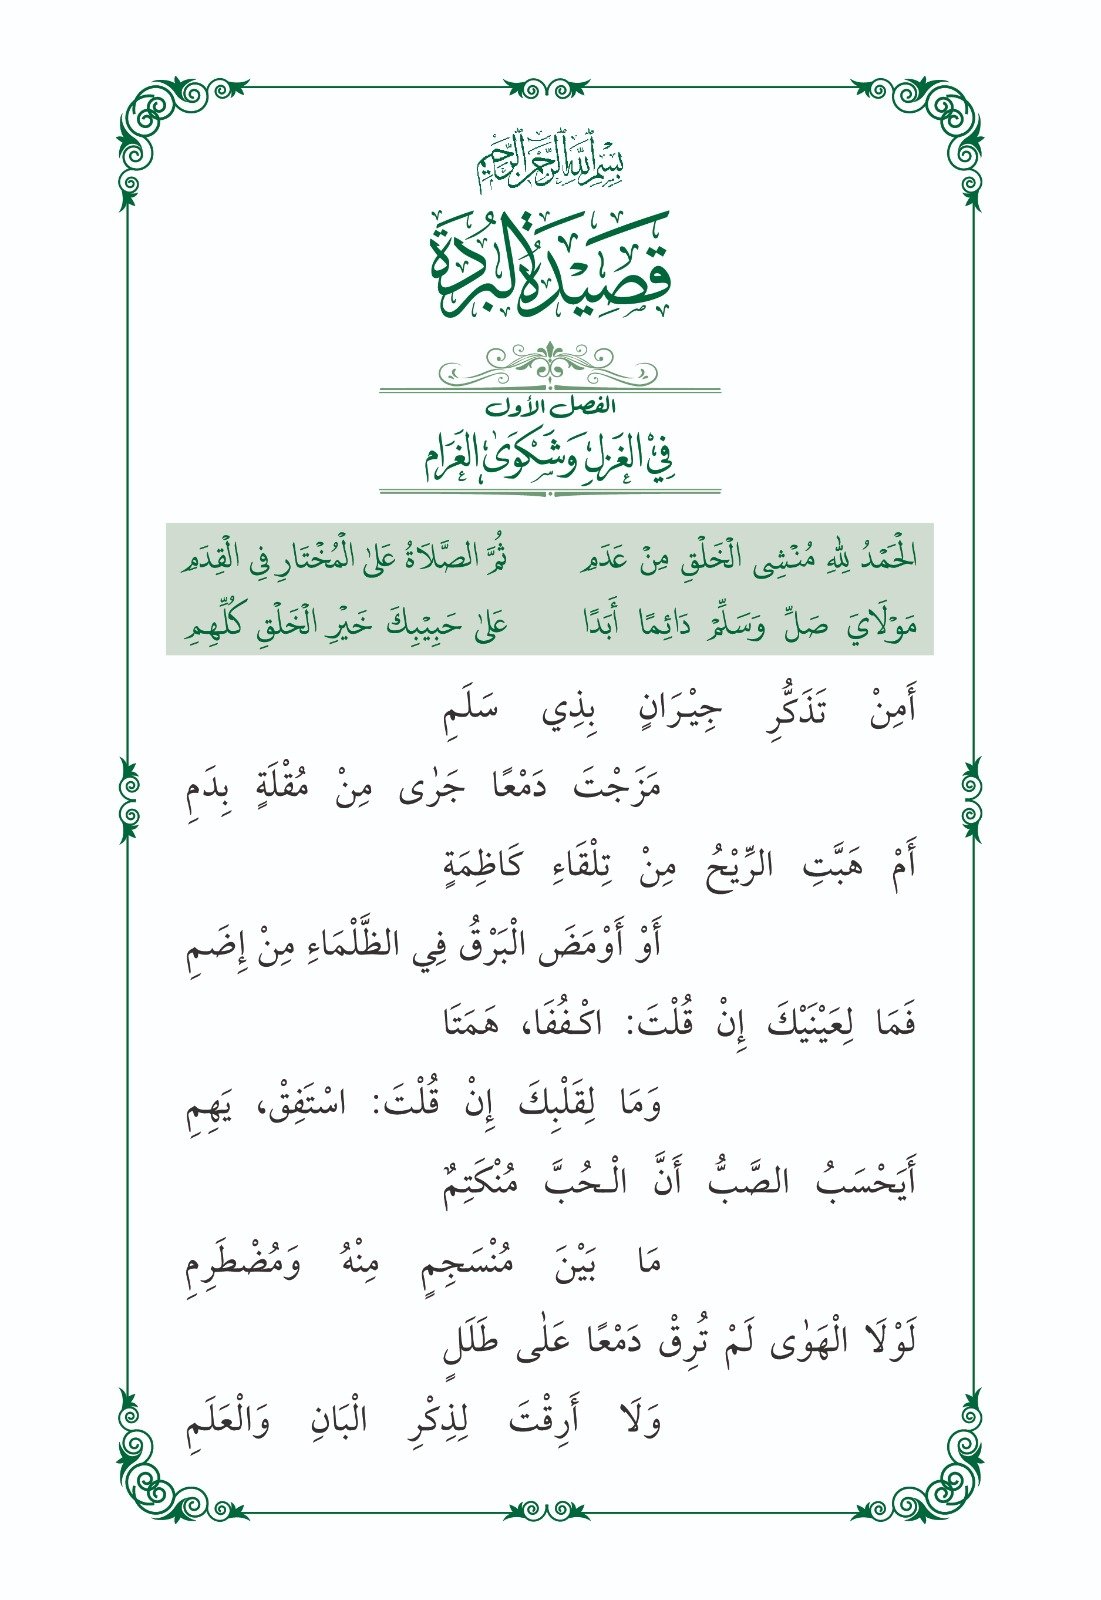 بِسْمِ اللهِ الرَّحْمٰنِ الرَّحِيْمِ
قَصِيْدَةُ الْبُرْدَة
الفصل الأول
فِيْ الغَزَلِ وَشَكْوَىٰ الغَرَامِ
الْحَمْدُ لِلّٰهِ مُنْشِی الْخَلْقِ مِنْ عَدَمِ ثُمَّ الصَّلَاةُ عَلىٰ الْمُخْتَارِ فِي الْقِدَمِ
مَوْلَايَ صَلِّ وَسَلِّمْ دَائِمًا أَبَدًا عَلىٰ حَبِيْبِكَ خَيْرِ الْخَلْقِ كُلِّهِمِ
أَمِنْ تَذَكُّرِ جِيْرَانٍ بِذِي سَلَمِ
مَزَجْتَ دَمْعًا جَرٰى مِنْ مُقْلَةٍ بِدَمِ
أَمْ هَبَّتِ الرِّيْحُ مِنْ تِلْقَاءِ كَاظِمَةٍ
أَوْ أَوْمَضَ الْبَرْقُ فِي الظَّلْمَاءِ مِنْ إِضَمِ
فَمَا لِعَيْنَيْكَ إِنْ قُلْتَ: اكْفُفَا، هَمَتَا
وَمَا لِقَلْبِكَ إِنْ قُلْتَ: اسْتَفِقْ، يَهِمِ
أَيَحْسَبُ الصَّبُّ أَنَّ الْحُبَّ مُنْكَتِمٌ
مَا بَيْنَ مُنْسَجِمٍ مِنْهُ وَمُضْطَرِمِ
لَوْلَا الْهَوٰى لَمْ تُرِقْ دَمْعًا عَلٰى طَلَلٍ
وَلَا أَرِقْتَ لِذِكْرِ الْبَانِ وَالْعَلَمِ